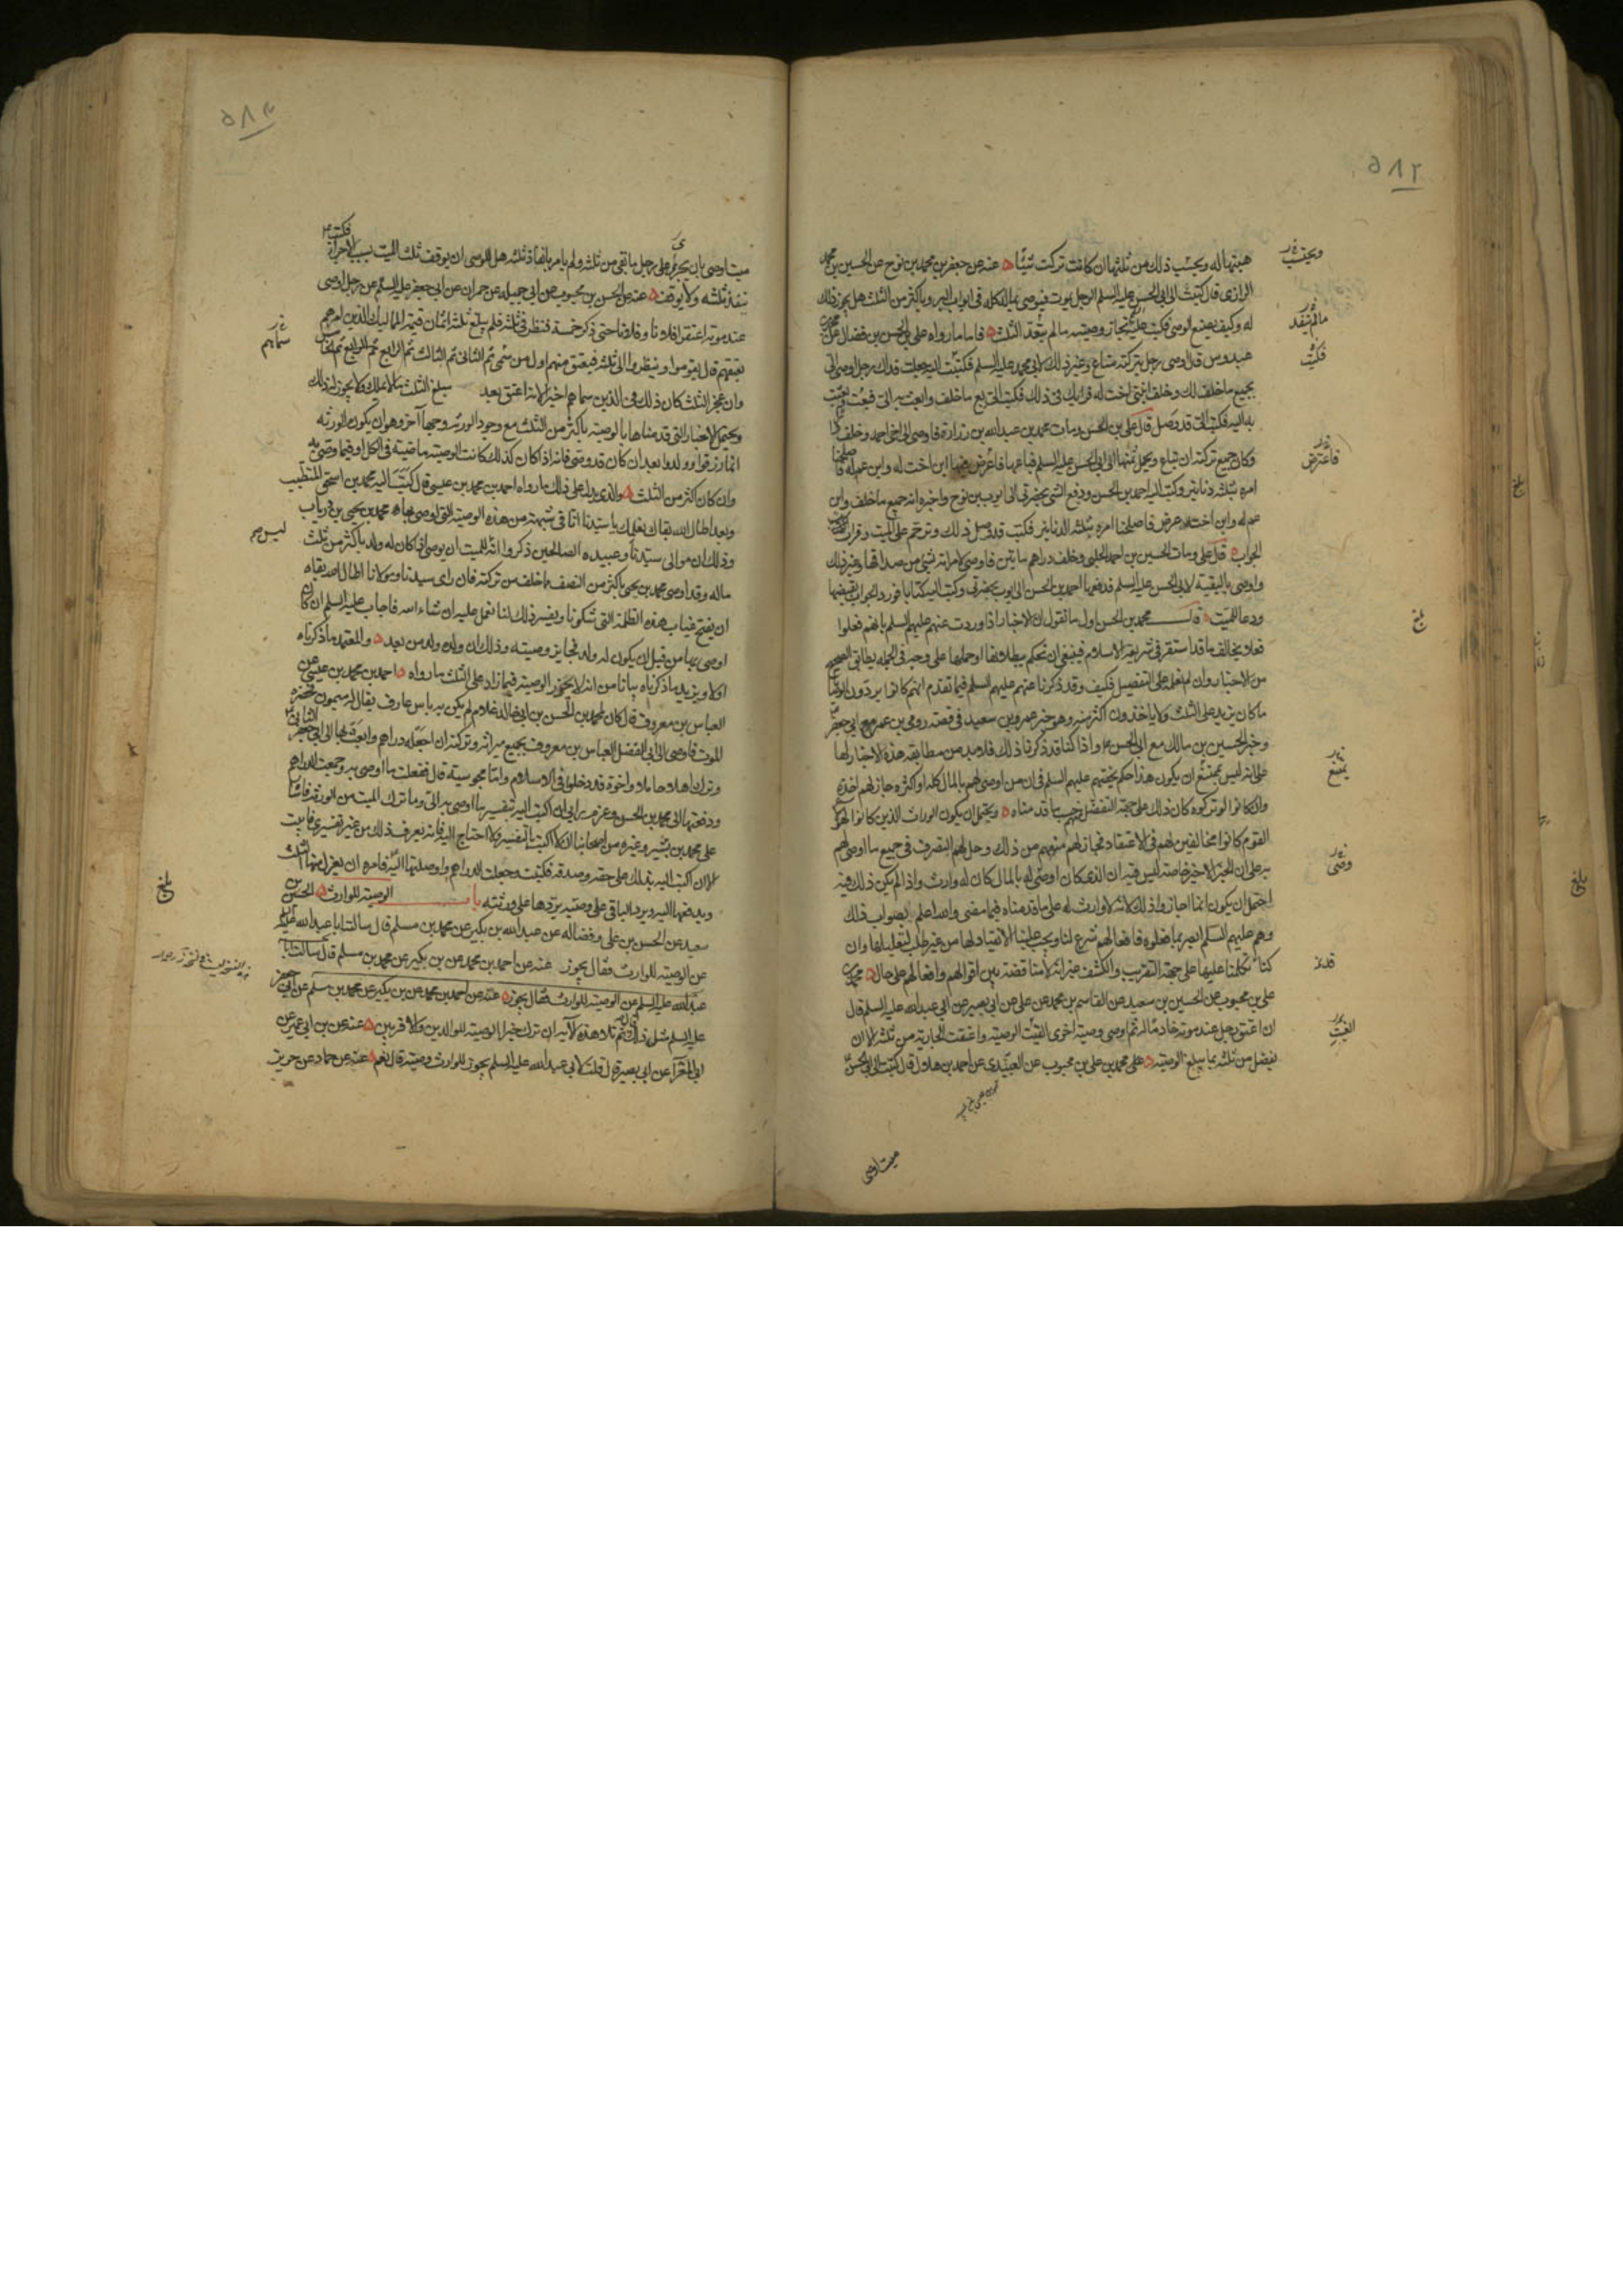 ۵۸۲
هبتها له ويحتسب ذلك من ثلثها ان كانت تركت شيئا عنه عن جعفر بن محمد بن نوح عن الحسين بن محمد
الرازى قال كتبت الى ابى الحسن عليه السلم الرجل يموت فيوصى بماله كله فى ابواب البر وباكثر من الثلث هل يجوز ذلك
له وكيف يصنع الوصى فكتب تجاز وصيته ما لم يتعد الثلث فاما ما رواه على بن الحسن بن فضال عن
عبدوس قال اوصى رجل بتركته متاع وغير ذلك لابى محمد عليه السلم فكتبت اليه جعلت فداك رجل اوصى الى
بجميع ما خلف لك وخلف ابنتى اخت له فرايك فى ذلك فكتب الى بع ما خلف وابعث به الى فبعت وبعثت
به اليه فكتب الى قد وصل قال على بن الحسن ومات محمد بن عبد الله بن زرارة فاوصى الى اخى احمد وخلف دارا
وكان جميع تركته ان تباع ويحمل ثمنها الى ابى الحسن عليه السلم فباعها فاعترض فيها ابن اخت له وابن عم له فاصلحنا
امره بثلثة دنانير وكتب اليه احمد بن الحسن ودفع الشئ بحضرتى الى ايوب بن نوح واخبره انه جميع ما خلف وابن
عم له وابن اخته عرض فاصلحنا امره بثلثة الدنانير فكتب قد وصل ذلك وترحم على الميت وقرات
الجواب قال على ومات الحسين بن احمد الحلبى وخلف دراهم مايتين فاوصى لامراته بشئ من صداقها وغير ذلك
واوصى بالبقية لابى الحسن عليه السلم فدفعها احمد بن الحسن الى ايوب بحضرتى وكتب اليه كتابا فورد الجواب بقبضها
ودعا للميت قال محمد بن الحسن اول ما نقول ان الاخبار اذا وردت عنهم عليهم السلم بانهم فعلوا
فعلا يخالف ما قد استقر فى شريعة الاسلام فينبغى ان نحكم ببطلانها او حملها على وجه فى الجملة يطابق الصحيح
من الاخبار وان لم نعلم على التفصيل فكيف وقد ذكرنا عنهم عليهم السلم فيما تقدم انهم كانوا يردون الوصايا
ما كان يزيد على الثلث ولا ياخذون اكثر منه وهو خبر عمرو بن سعيد فى قصة رومى بن عمر مع ابى جعفر
وخبر الحسين بن مالك مع ابى الحسن واذا كنا قد ذكرنا ذلك فلا بد من مطابقة هذه الاخبار لها
على انه ليس بممتنع ان يكون هذا حكم يختصهم عليهم السلم فى ان من اوصى لهم بالمال كله او اكثره جاز لهم اخذه
وان كانوا لو تركوه كان ذلك على جهة التفضل منهم حسب ما قدمناه ويحتمل ان يكون الوراث الذين كانوا لهؤلاء
القوم كانوا مخالفين لهم فى الاعتقاد فجاز لهم منعهم من ذلك وحل لهم التصرف فى جميع ما اوصى لهم
به على ان الخبر الاخير خاصة ليس فيه ان الذى كان اوصى له بالمال كان له وارث واذا لم يكن ذلك فيه
احتمل ان يكون انما اجاز واذ لك لانه لا وارث له على ما قدمناه فيما مضى والله اعلم بصواب ذلك
وهم عليهم السلم ابصر بما يفعلوه فافعالهم شرع لنا ويجب علينا الانقياد لها من غير طلب لتعليلها وان
كنا تكلمنا عليها على جهة التقريب والكشف عن انه لا مناقضة بين اقوالهم وافعالهم على حال محمد بن
على بن محبوب عن الحسين بن سعيد عن القاسم بن محمد عن على عن ابى بصير عن ابى عبد الله عليه السلم قال
ان اعتق رجل عند موته خادما له ثم اوصى وصية اخرى القيت الوصية واعتقت الجارية من ثلثه الا ان
يفضل من ثلثه ما يبلغ الوصية على محمد بن على بن محبوب عن العبيدى عن احمد بن هلال قال كتبت الى ابى الحسن
ميت اوصى
ما لم يتعد
فكتب
فاعترض
بلغ
يمتنع
وصى
قد
القيت
۵۸۳
ميت اوصى بان يجرى على رجل ما بقى من ثلثه ولم يامر بانفاذ ثلثه هل للوصى ان يوقف ثلث الميت بسبب الاجراء فكتب
ينفذ ثلثه ولا يوقف عنه عن الحسن بن محبوب عن ابى جميله عن حمران عن ابى جعفر عليه السلم عن رجل اوصى
عند موته اعتق فلانا وفلانا وفلانا حتى ذكر خمسة فنظر فى ثلثه فلم يبلغ ثلثه اثمان قيمة المماليك الذين امرهم
بعتقهم قال يقوموا وينظر الى ثلثه فيعتق منهم اول من سمى ثم الثانى ثم الثالث ثم الرابع ثم الخامس
وان عجز الثلث كان ذلك فى الذين سماهم اخيرا لانه اعتق بعد مبلغ الثلث ما لا يملك ولا يجوز له ذلك
ويحتمل الاخبار التى قدمناها بالوصية باكثر من الثلث مع وجود الورثة وجها آخر وهو ان يكون الورثه
انما رزقوا وولدوا بعد ان كان قد وصى فانه اذا كان كذلك كانت الوصية ماضية فى الكل او فيما وصى به
وان كان اكثر من الثلث والذى يدل على ذلك ما رواه احمد بن محمد بن عيسى قال كتب اليه محمد بن اسحق المتطبب
وبعد اطال الله بقاك نعلمك يا سيدنا انا فى شبهة من هذه الوصية التى اوصى بها محمد بن يحيى بن درياب
وذلك ان موالى سيدنا وعبيده الصالحين ذكروا انه للميت ان يوصى اذا كان له ولد باكثر من ثلث
ماله وقد اوصى محمد بن يحيى باكثر من النصف مما خلف من تركته فان راى سيدنا ومولانا اطال الله بقاه
ان يفتح غياب هذه الظلمة التى شكونا ويفسر ذلك لنا نعمل عليه ان شاء الله فاجاب عليه السلم ان كان
اوصى بها من قبل ان يكون له ولد فجايز وصيته وذلك ان ولده ولد من بعد والمعتمد ما ذكرناه
اولا ويزيد ما ذكرناه بيانا من انه لا يجوز الوصية فيما زاد على الثلث ما رواه احمد بن محمد بن عيسى عن
العباس بن معروف قال كان لمحمد بن الحسن بن ابى خالد غلام لم يكن به باس عارف يقال له ميمون فحضره
الموت فاوصى الى ابى الفضل العباس بن معروف بجميع ميراثه وتركته ان اجعله دراهم وابعث بها الى ابى جعفر الثانى
وترك اهلا حاملا واخوة قد دخلوا فى الاسلام واما مجوسية قال ففعلت ما اوصى به وجمعت الدراهم
ودفعتها الى محمد بن الحسن وعزم رايى ان اكتب اليه بتفسير ما اوصى به الى وما ترك الميت من الورثة فاشار
على محمد بن بشير وغيره من اصحابنا ان لا اكتب بالتفسير ولا احتاج اليه فانه يعرف ذلك من غير تفسيرى فابيت
الا ان اكتب اليه بذلك على حقه وصدقه فكتبت وجعلت الدراهم واوصلتها اليه فامره ان يعزل منها الثلث
ويدفعها اليه ويرد الباقى على وصيه يردها على ورثته باب الوصية للوارث الحسين بن
سعيد عن الحسن بن على وفضاله عن عبد الله بن بكير عن محمد بن مسلم قال سالت ابا عبد الله عليه
عن الوصية للوارث فقال يجوز عنه عن احمد بن محمد عن بن بكير عن محمد بن مسلم قال سالت ابا
عبد الله عليه السلم عن الوصية للوارث فقال يجوز عنه عن احمد بن محمد عن بن بكير عن محمد بن مسلم عن ابى جعفر
عليه السلم مثل ذلك ثم تلا هذه الآية ان ترك خيرا الوصية للوالدين والاقربين عنه عن بن ابى عمير عن
ابى المغرا عن ابى بصير قال قلت لابى عبد الله عليه السلم يجوز للوارث وصية قال نعم عنه عن حماد عن حريز
سماهم
ليس
بلغ